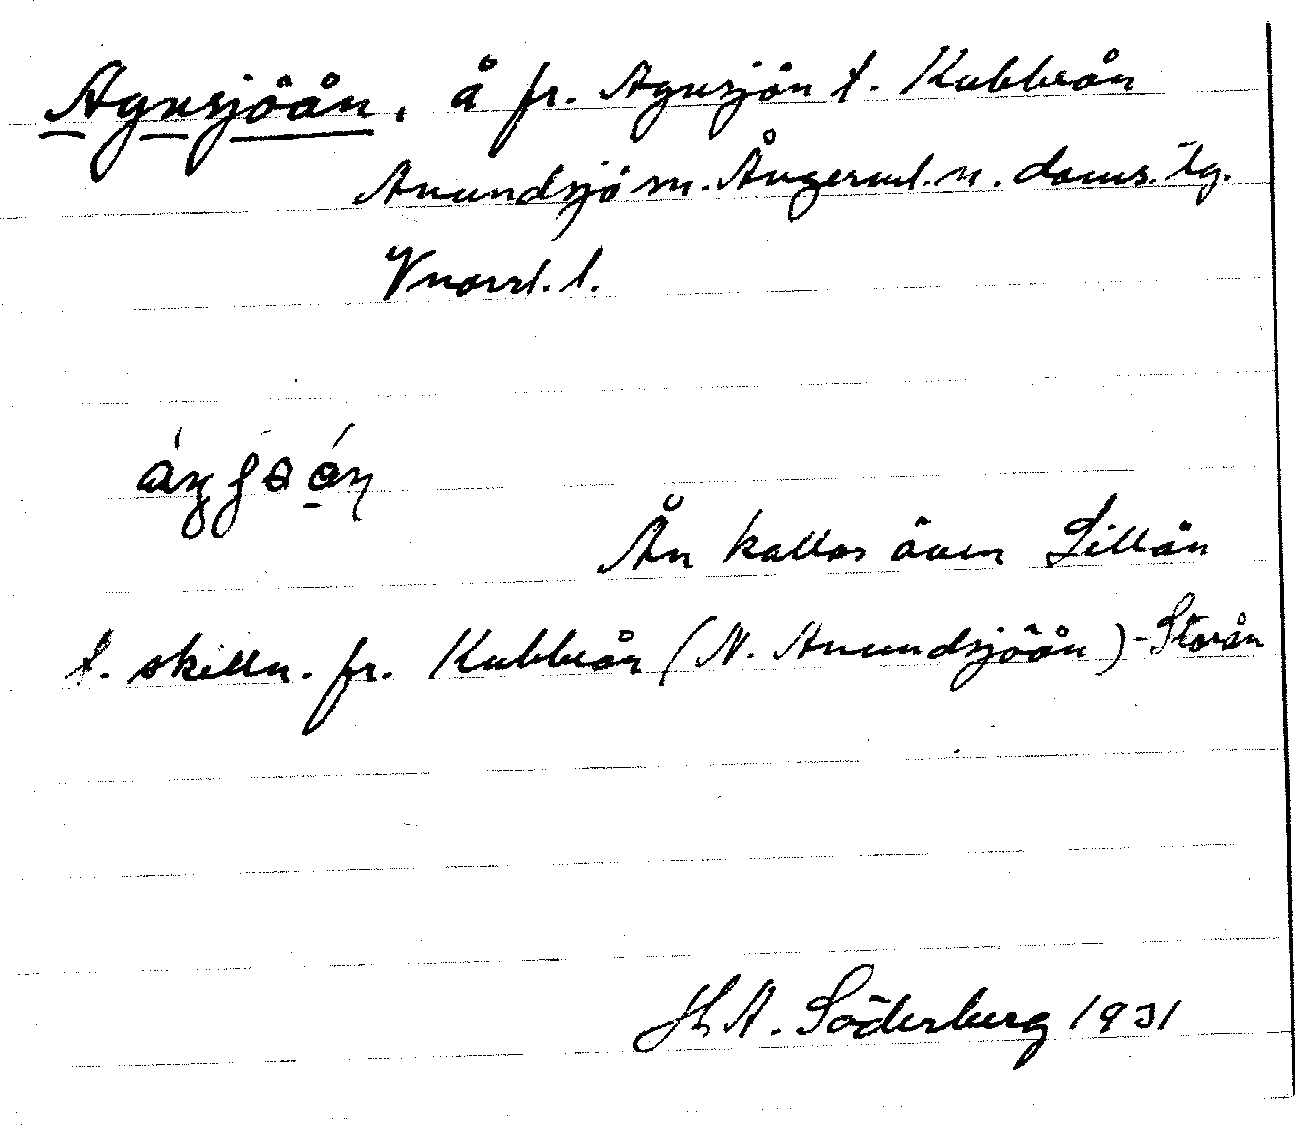 Agnsjöån, å fr. Agnsjön t. Kubbeån
Anundsjö sn. Ångerml. n. doms. tg.
Vnorrl. l.
Ån kallas även Lillån
t. skilln. fr. Kubbeån (N. Anundsjöån) - Storån
H. A. Söderberg 1931